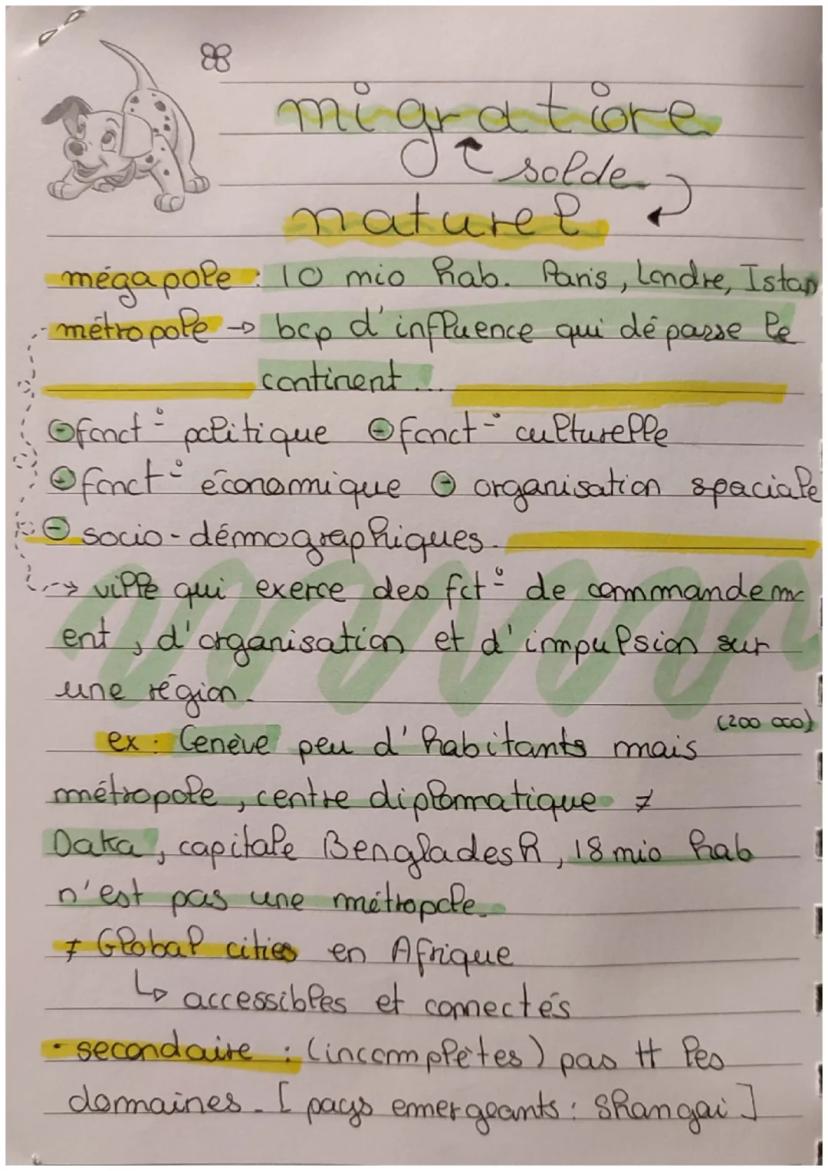 migratiore
solde
naturel
mégapole : 10 mio hab. Paris, Londre, Istan
métropole → bcp d'influence qui dépasse le
continent...
⊖ fonct° politique ⊖ fonct° culturelle
⊖ fonct° économique ⊖ organisation spaciale
⊖ socio-démographiques.
--> ville qui exerce des fct° de commandem
ent, d'organisation et d'impulsion sur
une région.
(200 000)
ex : Genève peu d'habitants mais
métropole, centre diplomatique ≠
Daka, capitale Bengladesh, 18 mio hab
n'est pas une métropole.
≠ Global cities en Afrique
↳ accessibles et connectés
• secondaire : (incomplètes) pas tt les
domaines. [ pays emergeants : Shangai ]